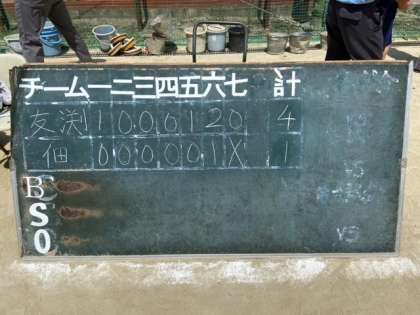 チーム一二三四五六七 計
友渕 1 0 0 0 1 2 0 4
佃 0 0 0 0 0 1 X 1
B
S
O